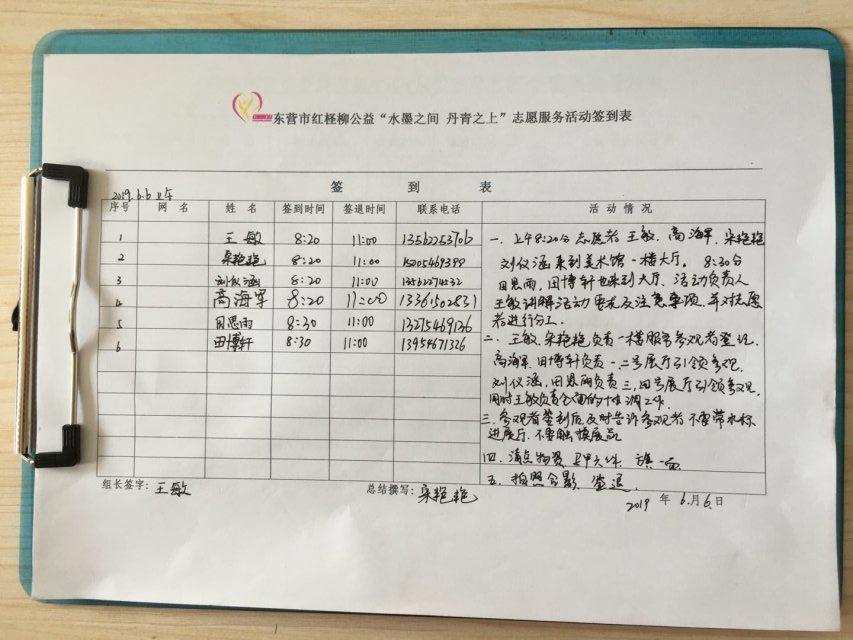 东营市红柽柳公益“水墨之间 丹青之上”志愿服务活动签到表
签 到 表
2019.6.6 上午
序号 网 名 姓 名 签到时间 签退时间 联系电话 活 动 情 况
1 王敏 8:20 11:00 13562253706
2 宋艳艳 8:20 11:00 15205469388
3 刘仪涵 8:20 11:00
4 高海军 8:20 11:00 13361502831
5 田思雨 8:30 11:00 13275469126
6 田博轩 8:30 11:00 13954671326
一、上午8:20分志愿者王敏、高海军、宋艳艳
刘仪涵来到美术馆一楼大厅。8:30分
田思雨,田博轩也来到大厅、活动负责人
王敏讲解活动要求及注意事项,并对志愿
者进行分工.
二、王敏、宋艳艳负责一楼服务参观者登记,
高海军、田博轩负责一、二号展厅引领参观,
刘仪涵,田思雨负责三,四号展厅引领参观,
同时王敏负责全面的协调工作.
三、参观者签到后及时告诉参观者不要带水杯
进展厅、不要触摸展品
四、清点物资 马甲六件、旗一面
五、拍照合影,签退.
组长签字:王敏
总结撰写:宋艳艳
2019 年 6 月 6 日